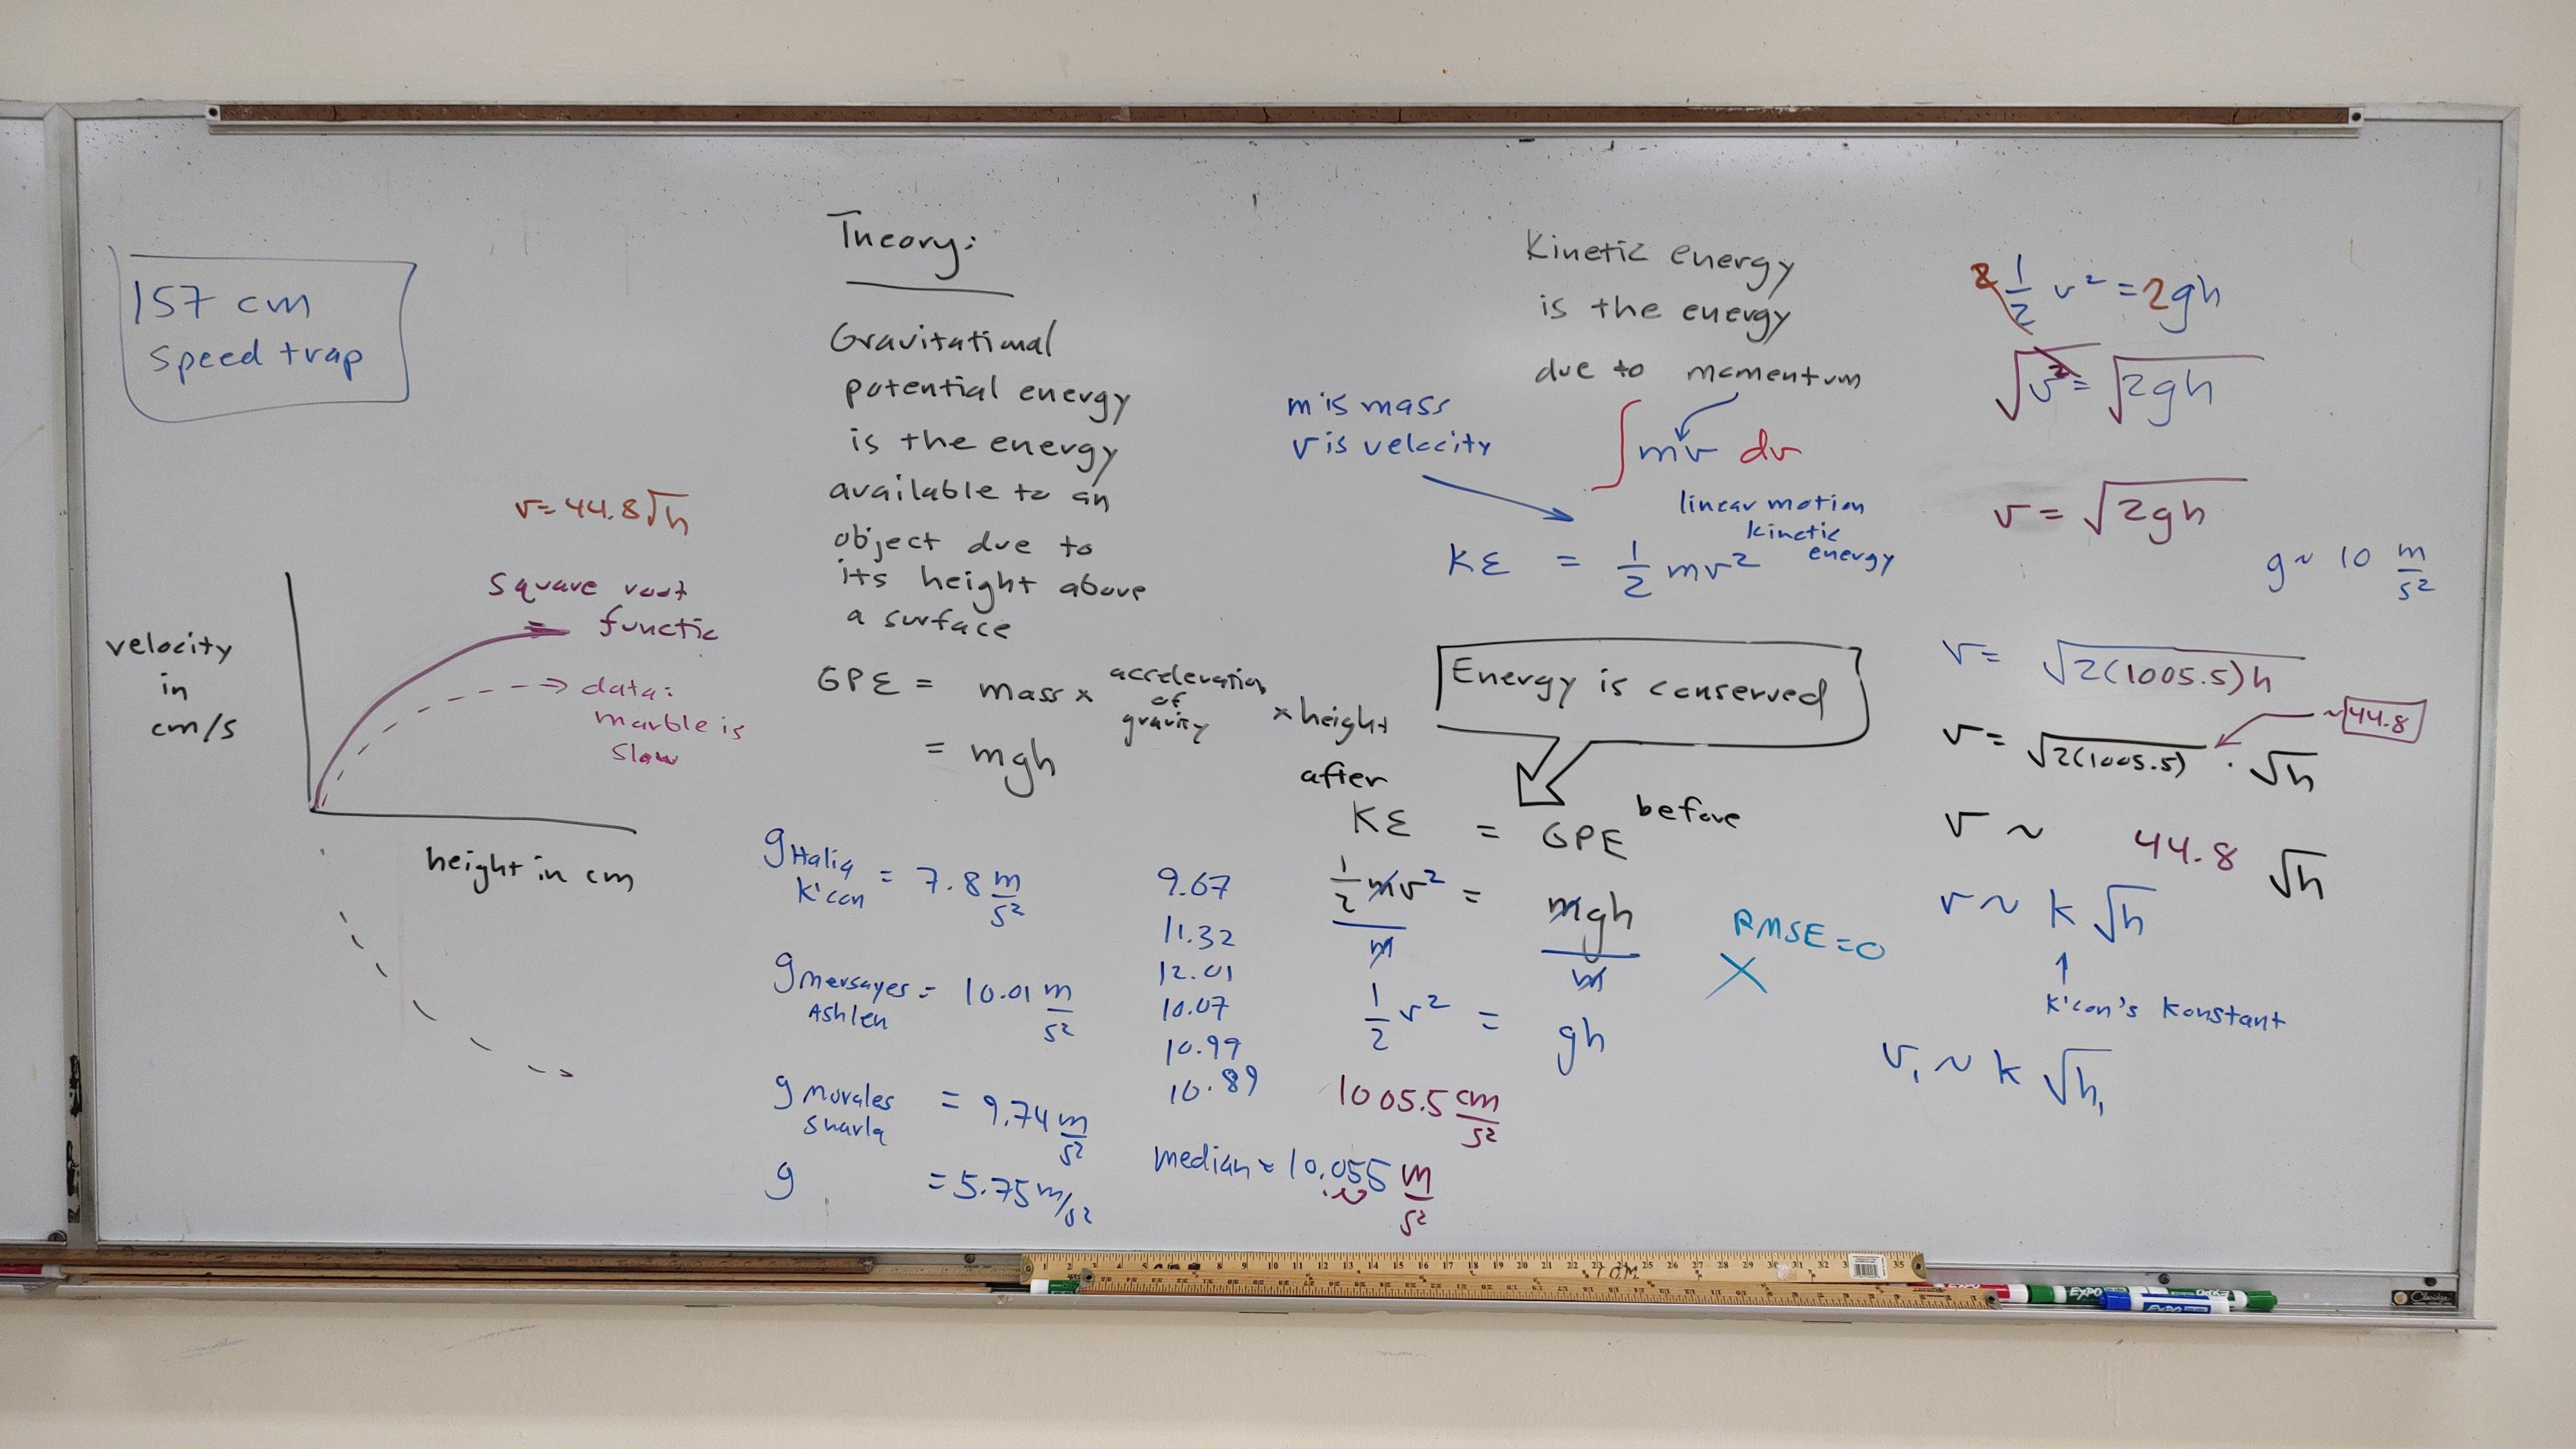 157 cm
speed trap
v = 44.8√h
square root
functio
data:
marble is
slow
velocity
in
cm/s
height in cm
Theory:
Gravitational
potential energy
is the energy
available to an
object due to
its height above
a surface
GPE = mass × acceleration of gravity × height
= mgh
g Halia K'con = 7.8 m/s²
g Mersayes Ashlen = 10.01 m/s²
g Morales Sharla = 9.74 m/s²
g = 5.75 m/s²
9.67
11.32
12.01
10.07
10.99
10.89
median = 10.055 m/s²
1005.5 cm/s²
Kinetic energy
is the energy
due to momentum
m is mass
v is velocity
∫ mv dv
linear motion
kinetic
energy
KE = 1/2 mv²
Energy is conserved
after
before
KE = GPE
1/2 mv² / m = mgh / m
1/2 v² = gh
RMSE = 0
2 1/2 v² = 2gh
√v² = √2gh
v = √2gh
g ~ 10 m/s²
v = √2(1005.5)h
~44.8
v = √2(1005.5) · √h
v ~ 44.8 √h
v ~ k √h
K'con's Konstant
v₁ ~ k √h₁
EXPO